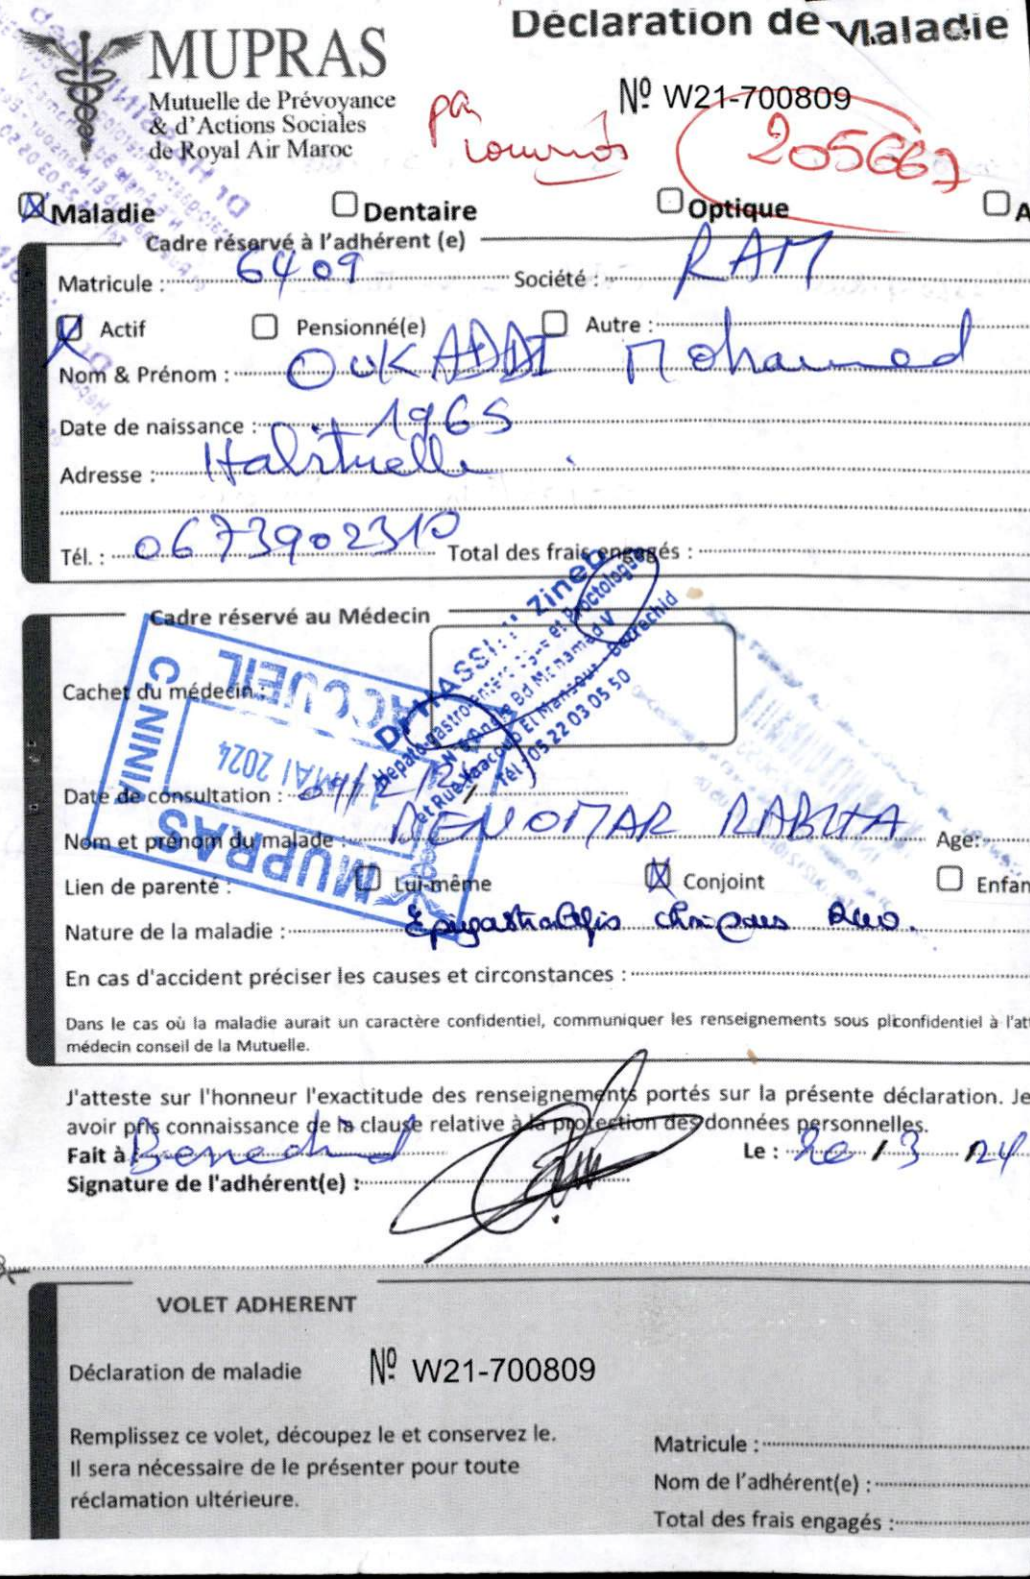 Déclaration de Maladie
MUPRAS
Mutuelle de Prévoyance
& d'Actions Sociales
de Royal Air Maroc
Nº W21-700809
par
205667
Maladie
Dentaire
Optique
A
Cadre réservé à l'adhérent (e)
Matricule : 6409 Société : RAM
Actif Pensionné(e) Autre :
Nom & Prénom : OUKADDI Mohamed
Date de naissance : 1965
Adresse : Habituelle
Tél. : 0673902310 Total des frais engagés :
Cadre réservé au Médecin
Cachet du médecin :
Zineb
Hépato-gastro-entérologue et Proctologue
Bd Mohamed V
et Rue Yaacoub El Mansour - Berrechid
Tél : 05 22 03 05 50
ACCUEIL
MAI 2024
MUPRAS
Date de consultation :
Nom et prénom du malade : BENOMAR RABHA Age:
Lien de parenté : Lui-même Conjoint Enfan
Nature de la maladie : Epigastralgies
En cas d'accident préciser les causes et circonstances :
Dans le cas où la maladie aurait un caractère confidentiel, communiquer les renseignements sous pliconfidentiel à l'att
médecin conseil de la Mutuelle.
J'atteste sur l'honneur l'exactitude des renseignements portés sur la présente déclaration. Je
avoir pris connaissance de la clause relative à la protection des données personnelles.
Fait à Berrechid Le : 20/3 24
Signature de l'adhérent(e) :
VOLET ADHERENT
Déclaration de maladie Nº W21-700809
Remplissez ce volet, découpez le et conservez le.
Il sera nécessaire de le présenter pour toute
réclamation ultérieure.
Matricule :
Nom de l'adhérent(e) :
Total des frais engagés :